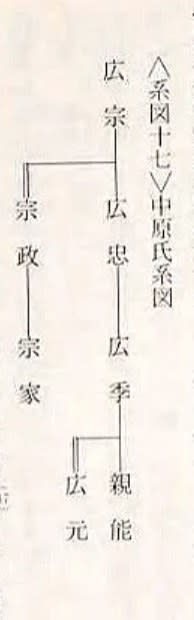 〈系図十七〉中原氏系図
広宗
広忠
広季
親能
広元
宗政
宗家